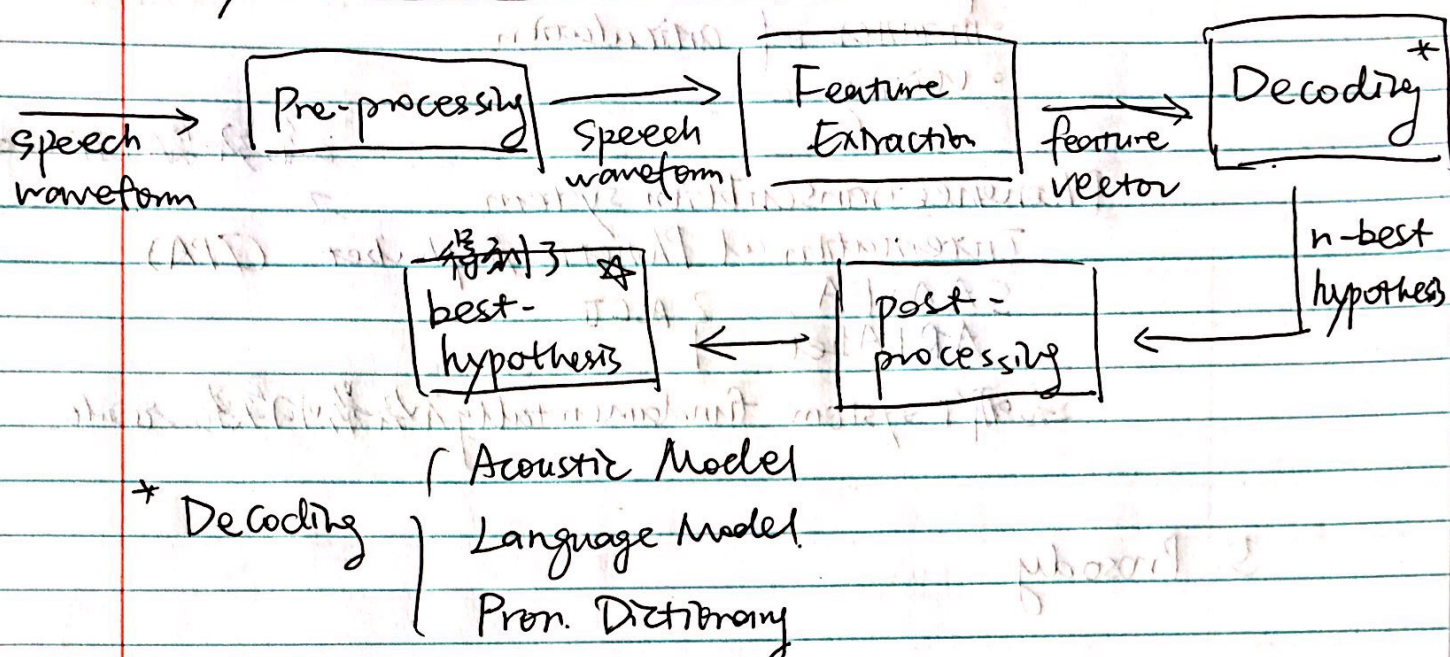 speech
waveform
Pre-processing
speech
waveform
Feature
Extraction
feature
vector
Decoding *
n-best
hypothesis
post-
processing
得到了 ☆
best-
hypothesis
* Decoding
Acoustic Model
Language Model
Pron. Dictionary